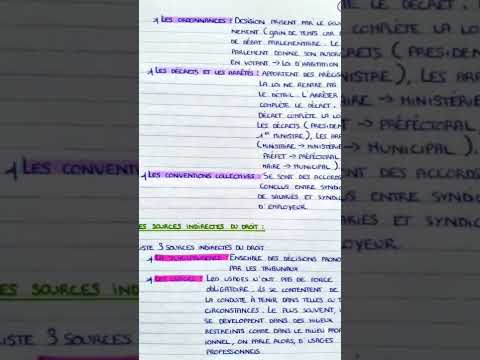 LES ORDONNANCES : DÉCISION PRISENT PAR LE GOU
NEMENT (GAIN DE TEMPS CAR
DE DÉBAT PARLEMENTAIRE. LE
PARLEMENT DONNE SON AUTOR
EN VOTANT → LOI D'HABITATION
LES DÉCRETS ET LES ARRÊTÉS : APPORTENT DES PRÉCIS
LA LOI NE RENTRE PAS
LE DÉTAIL. L'ARRÊTER
COMPLÈTE LE DÉCRET.
DÉCRET COMPLÈTE LA LO
LES DÉCRETS (PRÉSIDEN
1er MINISTRE), LES AR
(MINISTRE → MINISTÉRIE
PRÉFET → PRÉFÉCTORAL
MAIRE → MUNICIPAL).
LES CONVENTIONS COLLECTIVES : SE SONT DES ACCORDS
CONCLUS ENTRE SYNDIC
DE SALARIÉS ET SYNDIC
D'EMPLOYEUR
ES SOURCES INDIRECTES DU DROIT :
ISTE 3 SOURCES INDIRECTES DU DROIT
LA JURISPRUDENCE : ENSEMBLE DES DÉCISIONS PRONO
PAR LES TRIBUNAUX
LES USAGES : LES USAGES N'ONT PAS DE FORCE
OBLIGATOIRE. ILS SE CONTENTENT DE
LA CONDUITE À TENIR DANS TELLES OU T
CIRCONSTANCES. LE PLUS SOUVENT,
SE DÉVELOPPENT DANS DES MILIEUX
RESTREINTS COMME DANS LE MILIEU PROF
IONNEL, ON PARLE ALORS, D'USAGES
PROFESSIONNELS
LES CONVENT
ES SOURCES
ISTE 3 SOURCES
LE DÉCRET.
COMPLÈTE LA LO
CRETS (PRÉSIDEN
NISTRE), LES AR
RE → MINISTÉRIE
→ PRÉFÉCTORAL
→ MUNICIPAL).
NT DES ACCORDS
US ENTRE SYNDIC
LARIÉS ET SYNDIC
LOYEUR